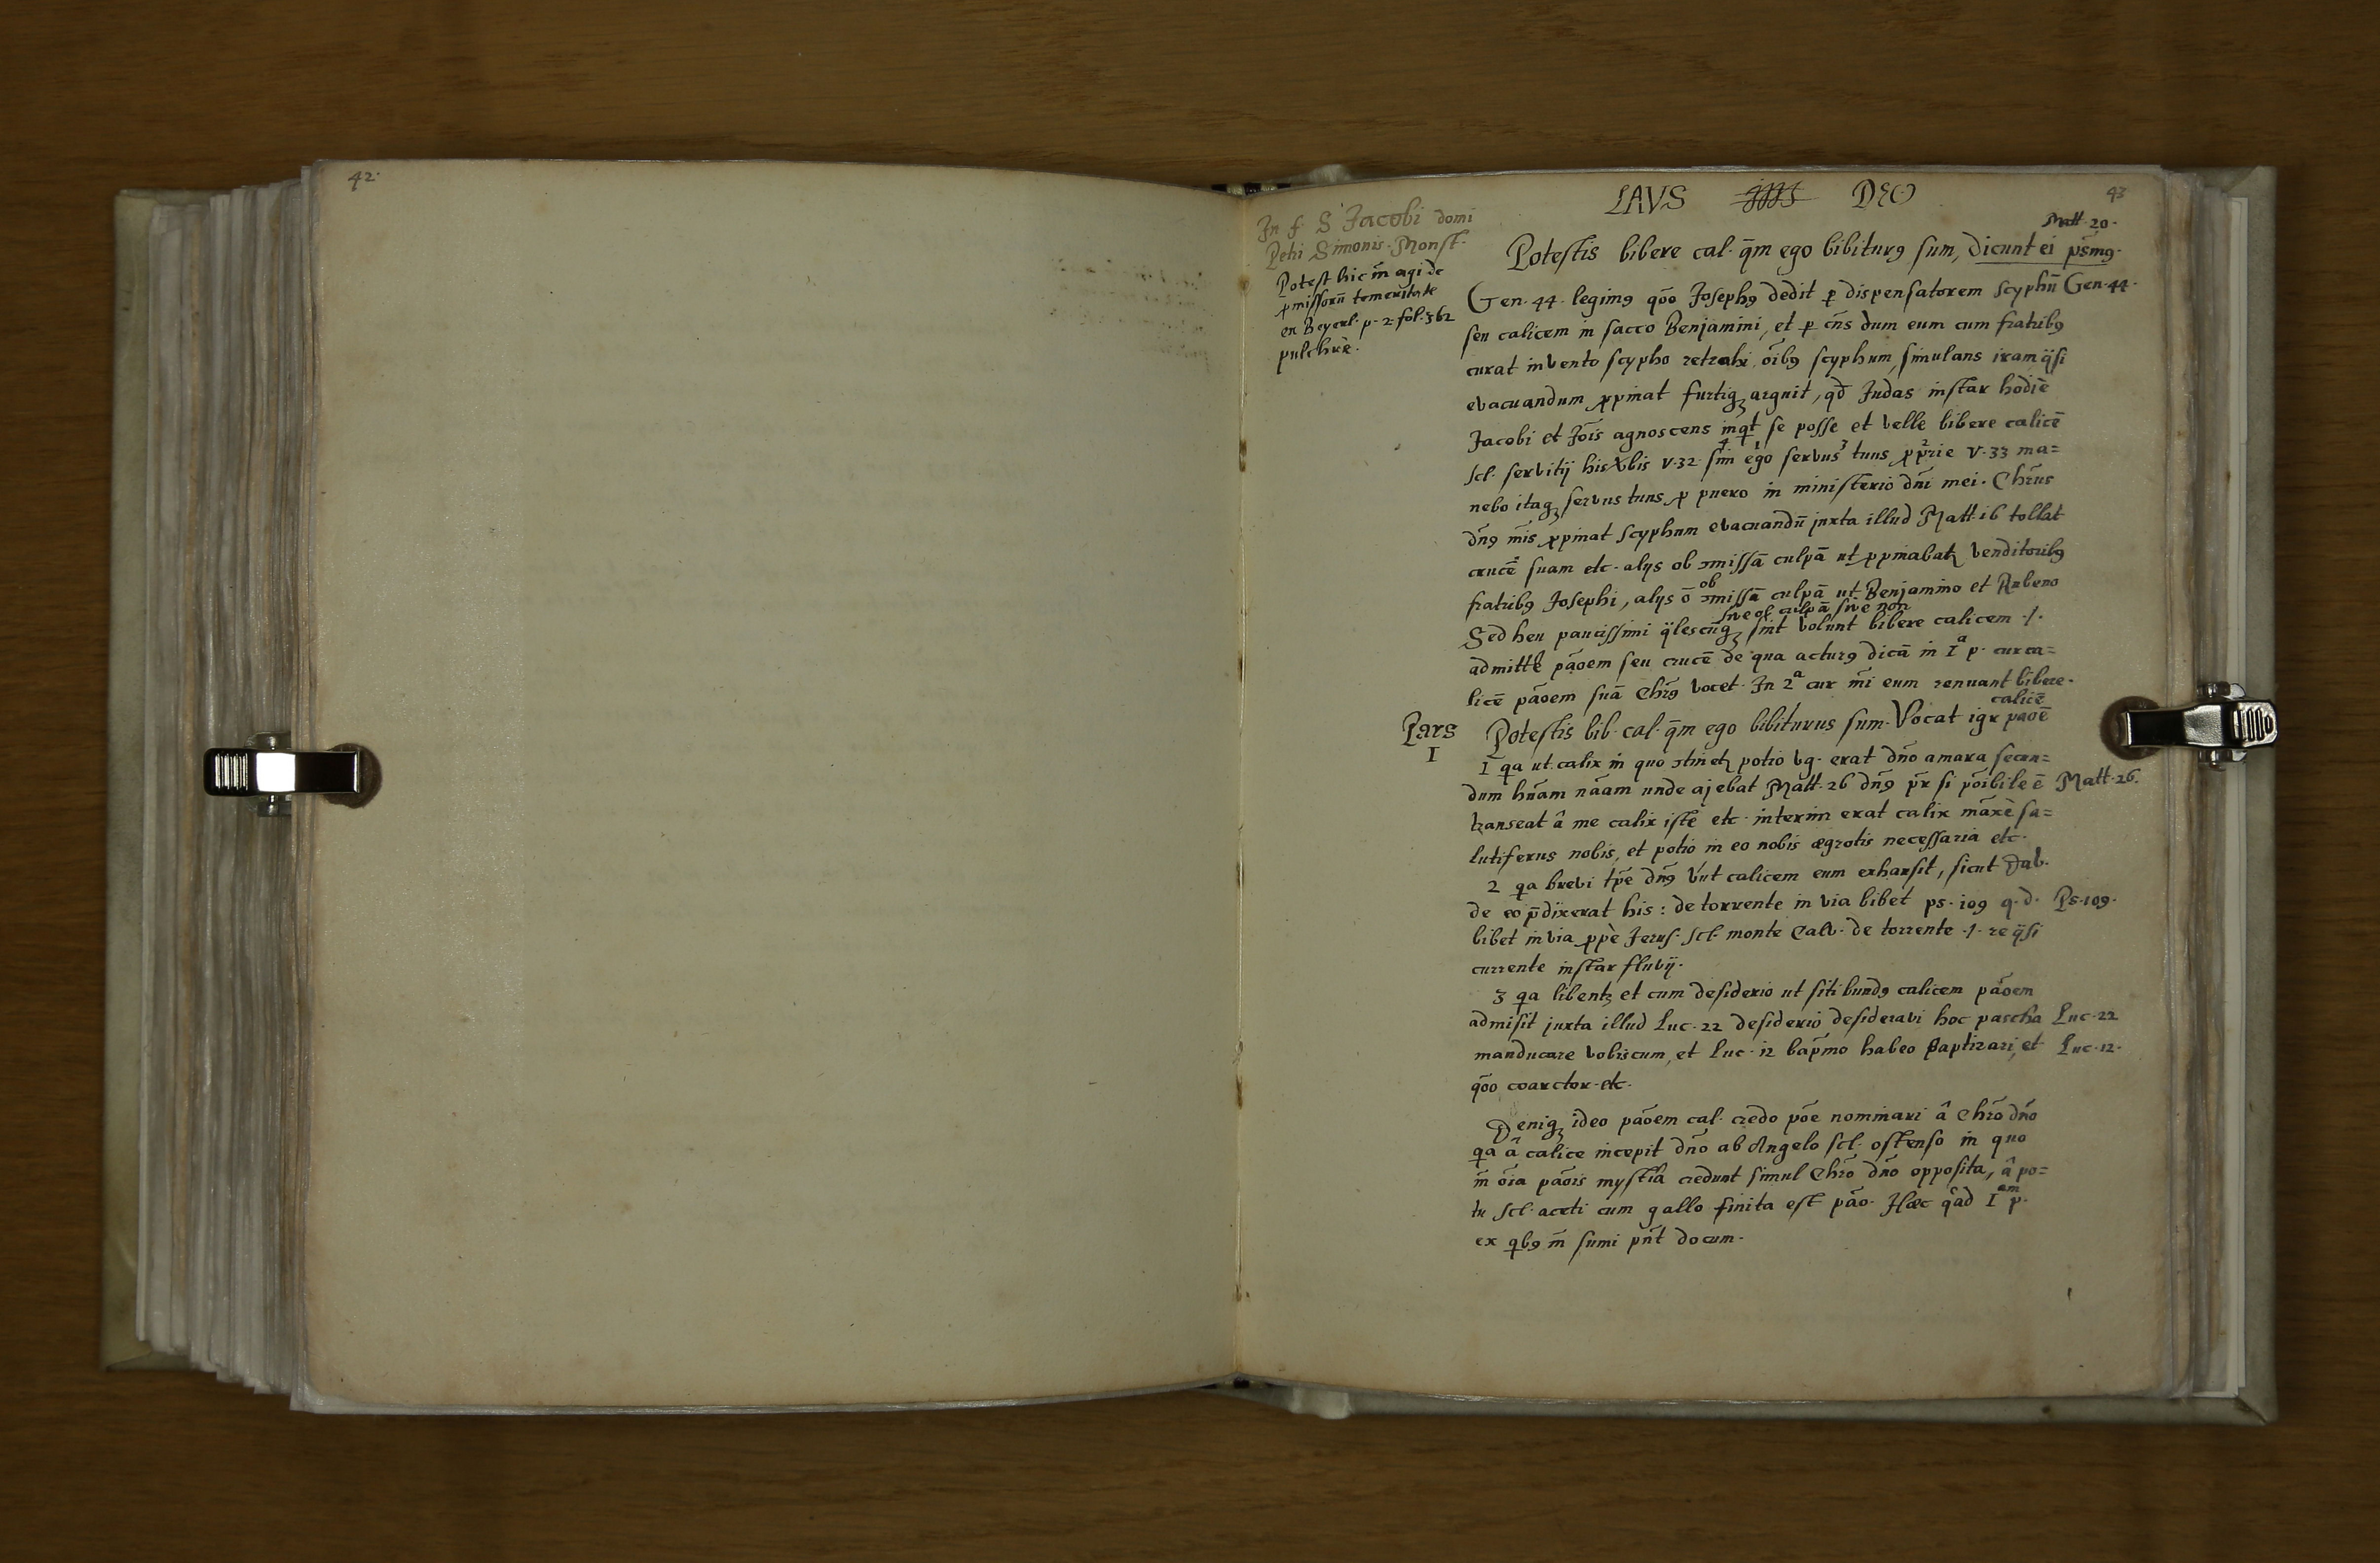 42.
43
LAVS DEO
In f. S Jacobi domi
Petri Simonis. Monst.
Potest hic m̄ agi de
p̱missorū temeritate
ex Beyerl. p. 2. fol. 362
pulchrè.
Matt. 20.
Potestis bibere cal. q̄m ego bibiturꝰ sum, dicunt ei
Gen. 44. legimꝰ qōo Josephꝰ dedit ꝑ dispensatorem scyphū Gen. 44.
seu calicem in sacco Benjamini, et ꝑ cn̄s dum eum cum fratribꝰ
curat invento scypho retrahi, oībꝰ scyphum, simulans iram q̄si
evacuandum ꝓpinat furtiqꝫ arguit, qd̄ Judas instar hodiè
Jacobi et Jōis agnoscens inqt se posse et velle bibere calicē
scl. servitij his v̄bis v. 32 4 1 ego servus 3 tuus 2 ꝓprie v. 33 ma=
nebo itaqꝫ servus tuus ꝓ puero in ministerio dn̄i mei. Chr̄us
dn̄ꝰ ꝓpinat scyphum evacuandū juxta illud Matt. 16 tollat
crucē suam etc. alijs ob ꝯmissā culpā ut ꝓpinabatꝫ venditoribꝰ
fratribꝰ Josephi, alijs ō ob ꝯmissā culpā ut Benjamino et Rubeno
sive ob culpā sive non
Sed heu paucissimi q̄lescūqꝫ sint volunt bibere calicem ./.
admitte pāoem seu crucē de qua acturꝰ dicā in Iᵃ p. cur ca=
licē pāoem suā Chrꝰ vocet. In 2ᵃ cur eum renuant bibere.
calicē
Pars
I
Potestis bib. cal. q̄m ego bibiturus sum. Vocat igr paoē
I qa ut calix in quo ꝯtinetꝫ potio erat dn̄o amara secun=
dum hn̄am nāam unde ajebat Matt. 26 dn̄ꝰ pr̄ si poībile ē Matt. 26.
transeat â me calix iste etc. interim erat calix māxè sa=
lutiferus nobis, et potio in eo nobis ægrotis necessaria etc.
2 qa brevi tp̄e dn̄ꝰ v̄ut calicem eum exhausit, sicut Dav.
de eo p̄dixerat his: de torrente in via bibet ps. 109 q. d. Ps. 109.
bibet in via ꝓpè Jerus. scl. monte Calv. de torrente ./. re q̄si
currente instar fluvij.
3 qa libentꝫ et cum desiderio ut sitibundꝰ calicem pāoem
admisit juxta illud Luc. 22 desiderio desideravi hoc pascha Luc. 22
manducare vobiscum, et Luc. 12 bap̄mo habeo Baptizari, et Luc. 12.
qōo coarctor. etc.
Deniqꝫ ideo pāoem cal. credo pōe nominari â Chrō dn̄o
qa â calice incepit dn̄o ab Angelo scl. ostenso in quo
m̄ oīa pāois mystīa credunt simul Chrō dn̄o opposita, â po=
tu scl. aceti cum gallo finita est pāo. Hæc q̄ad Iᵃᵐ p.
ex qbꝰ m̄ sumi pn̄t docum.